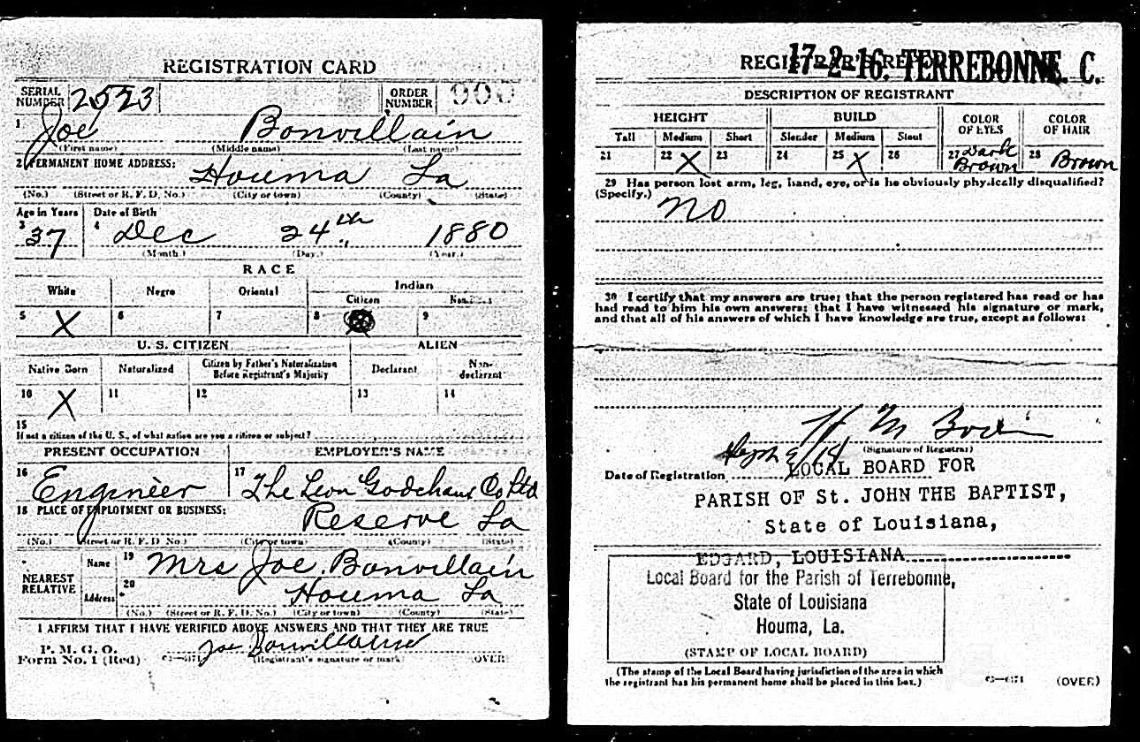 REGISTRATION CARD
SERIAL NUMBER 2523 ORDER NUMBER 900
1 Joe Bonvillain
(First name) (Middle name) (Last name)
2 PERMANENT HOME ADDRESS:
Houma La
(No.) (Street or R. F. D. No.) (City or town) (County) (State)
Age in Years Date of Birth
3 37 4 Dec 24th 1880
(Month.) (Day.) (Year.)
RACE
White Negro Oriental Indian
Citizen
5 X 6 7 8 9
U. S. CITIZEN ALIEN
Native Born Naturalized Citizen by Father's Naturalization Before Registrant's Majority Declarant Non-declarant
10 X 11 12 13 14
15
If not a citizen of the U. S., of what nation are you a citizen or subject?
PRESENT OCCUPATION EMPLOYER'S NAME
16 Engineer 17 The Leon Godchaux Co Ltd
18 PLACE OF EMPLOYMENT OR BUSINESS:
Reserve La
(No.) (Street or R. F. D. No.) (City or town) (County) (State)
NEAREST RELATIVE Name 19 Mrs Joe Bonvillain
Address 20 Houma La
(No.) (Street or R. F. D. No.) (City or town) (County) (State)
I AFFIRM THAT I HAVE VERIFIED ABOVE ANSWERS AND THAT THEY ARE TRUE
P. M. G. O.
Form No. 1 (Red) Joe Bonvillain
(Registrant's signature or mark) (OVER)
REGISTRAR'S REPORT
17-2-16. TERREBONNE. C.
DESCRIPTION OF REGISTRANT
HEIGHT BUILD COLOR OF EYES COLOR OF HAIR
Tall Medium Short Slender Medium Stout
21 22 X 23 24 25 X 26 27 Dark Brown 28 Brown
29 Has person lost arm, leg, hand, eye, or is he obviously physically disqualified?
(Specify.) No
30 I certify that my answers are true; that the person registered has read or has
had read to him his own answers; that I have witnessed his signature or mark,
and that all of his answers of which I have knowledge are true, except as follows:
(Signature of Registrar)
Date of Registration
LOCAL BOARD FOR
PARISH OF St. JOHN THE BAPTIST,
State of Louisiana,
EDGARD, LOUISIANA
Local Board for the Parish of Terrebonne,
State of Louisiana
Houma, La.
(STAMP OF LOCAL BOARD)
(The stamp of the Local Board having jurisdiction of the area in which
the registrant has his permanent home shall be placed in this box.)
(OVER)